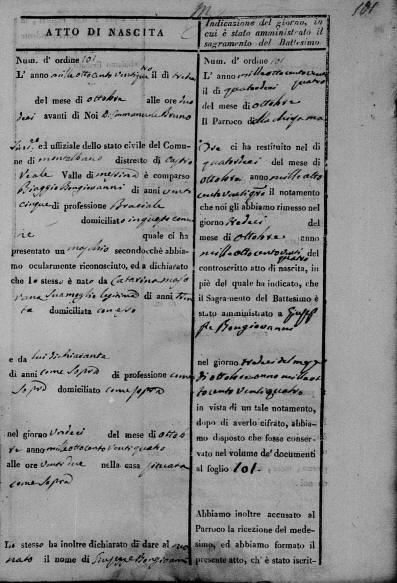 101
ATTO DI NASCITA
Num. d'ordine 101
L'anno mille otto cento venti quattro il di tredici
del mese di ottobre alle ore
avanti di Noi D. Emmanuele Bruno
ed uffiziale dello stato civile del Comune
di montalbano distretto di Castro
reale Valle di messina è comparso
Biaggio Bongiovanni di anni venti
cinque di professione Bracciale
domiciliato in questo comu
ne quale ci ha
presentato un maschio secondocchè abbia-
mo ocularmente riconosciuto, ed a dichiarato
che lo stesso è nato da Catarina
sua moglie legitima di anni
domiciliata
e da lui dichiarante
di anni come sopra di professione come
sopra domiciliato come sopra
nel giorno tredici del mese di otto
bre anno mille otto cento venti quattro
alle ore nella casa
come sopra
Lo stesso ha inoltre dichiarato di dare al neo
nato il nome di Giuseppe Bongiovanni
Indicazione del giorno, in
cui è stato amministrato il
sagramento del Battesimo
Num. d'ordine 101
L'anno mille otto cento venti quattro
il di quatordeci
del mese di ottobre
Il Parroco
ci ha restituito nel di
quatordeci del mese di
ottobre anno mille otto
cento venti quattro il notamento
che noi gli abbiamo rimesso nel
giorno tredeci del
mese di ottobre anno
mille otto cento venti quattro
controscritto atto di nascita, in
piè del quale ha indicato, che
il Sagramento del Battesimo è
stato amministrato a Giusep
pe Bongiovanni
nel giorno tredeci del mese
di ottobre anno mille otto
cento venti quattro
in vista di un tale notamento,
dopo di averlo cifrato, abbia-
mo disposto che fosse conser-
vato nel volume de' documenti
al foglio 101.
Abbiamo inoltre accusato al
Parroco la ricezione del mede-
simo, ed abbiamo formato il
presente atto, ch'è stato iscrit-